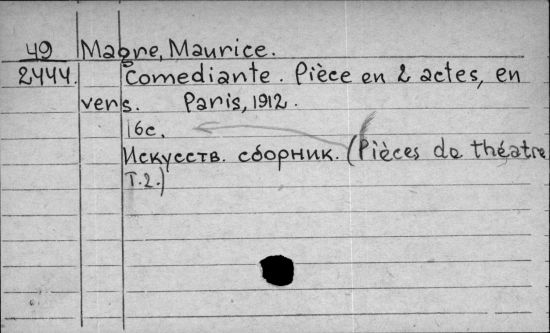 49 Magre, Maurice.
2444. Comediante. Pièce en 2 actes, en
vers. Paris, 1912.
16c.
Искусств. сборник. (Pièces de théatre
T.2.)